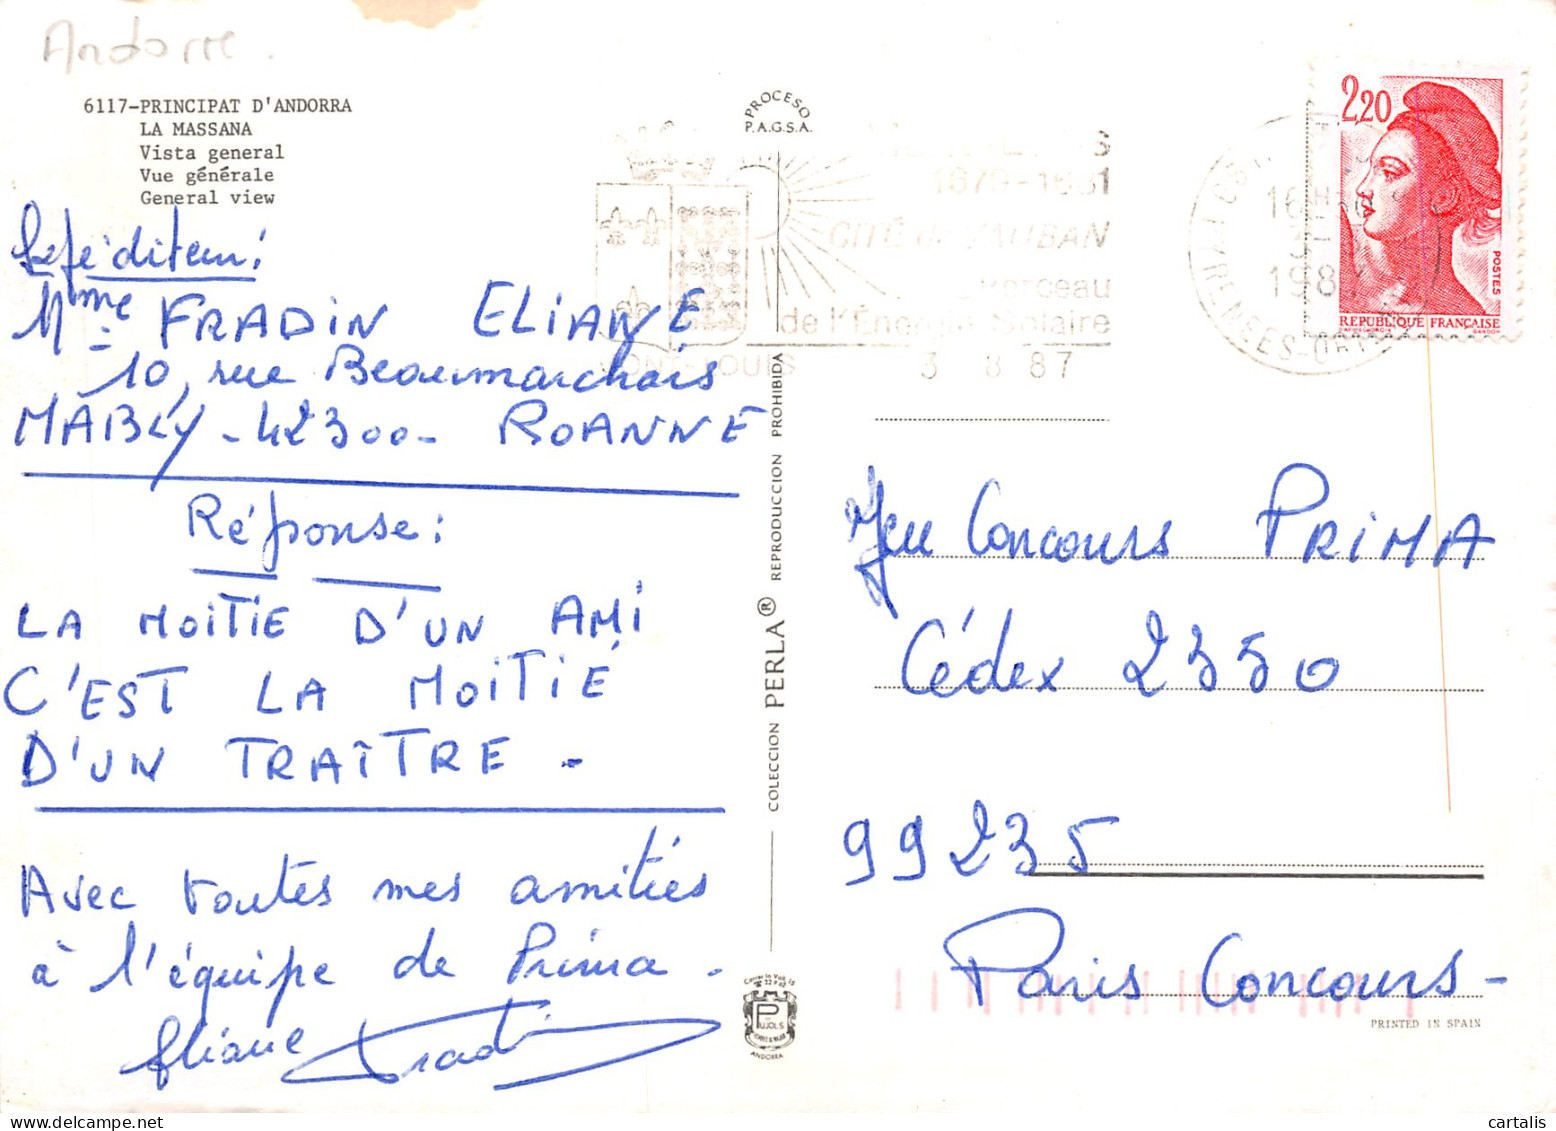 Andorre.
6117-PRINCIPAT D'ANDORRA
LA MASSANA
Vista general
Vue générale
General view
Expéditeur:
Mme FRADIN ELIANE
10, rue Beaumarchais
MABLY - 42300 - ROANNE
Réponse:
LA MOITIE D'UN AMI
C'EST LA MOITIÉ
D'UN TRAÎTRE -
Avec toutes mes amitiés
à l'équipe de Prima.
Eliane Fradin
PROCESO
P.A.G.S.A.
1679-1681
CITÉ de VAUBAN
Berceau
de l'Energie Solaire
MONT-LOUIS
3 8 87
16H
3-8
1987
PYRENEES-OR
2,20
POSTES
REPUBLIQUE FRANÇAISE
GANDON
COLECCION PERLA® REPRODUCCION PROHIBIDA
PUJOLS
ANDORRA
Jeu Concours PRIMA
Cédex 2350
99235
Paris Concours -
PRINTED IN SPAIN
cartalis